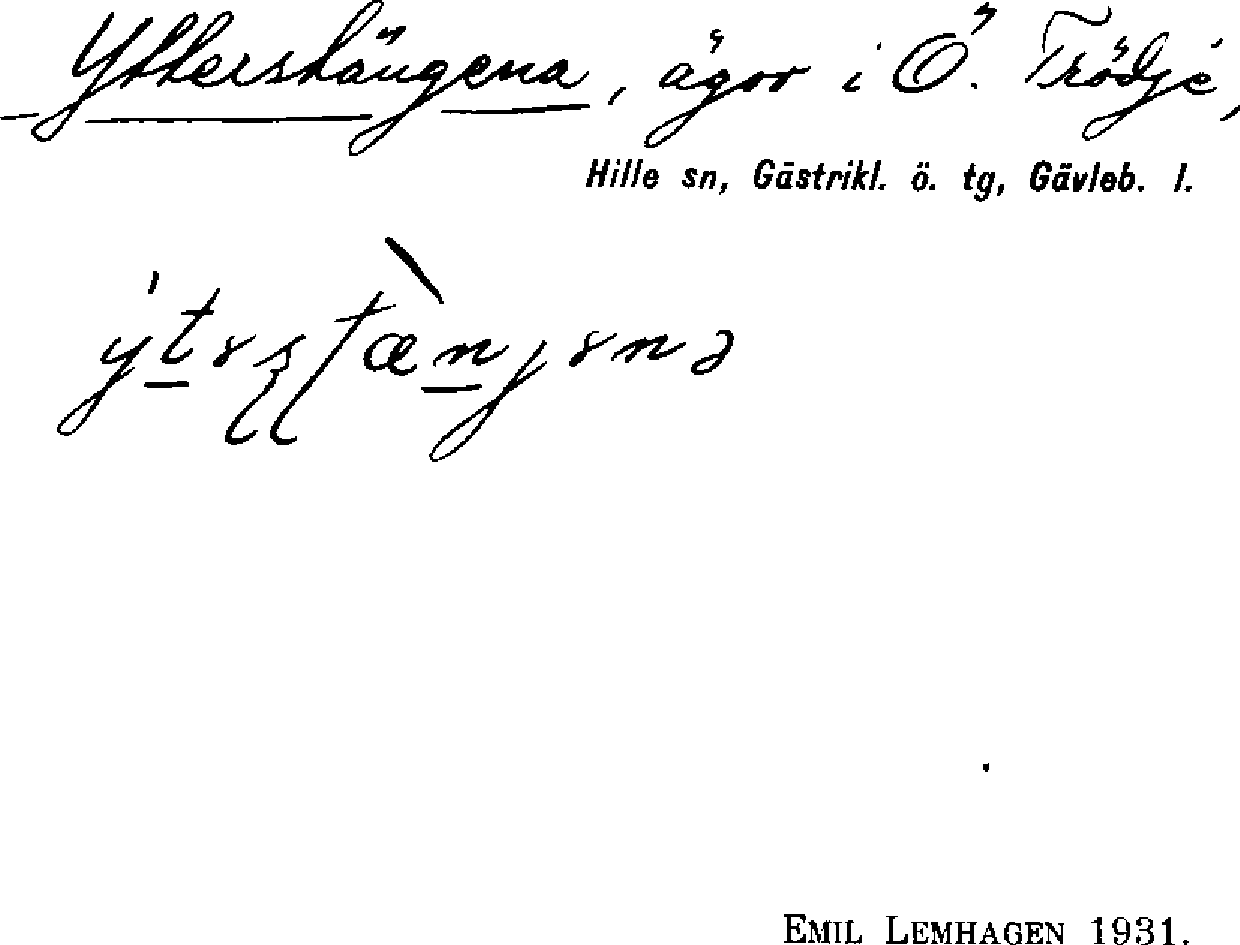 Ytterstängena, ägor i Ö. Trödje,
Hille sn, Gästrikl. ö. tg, Gävleb. l.
EMIL LEMHAGEN 1931.